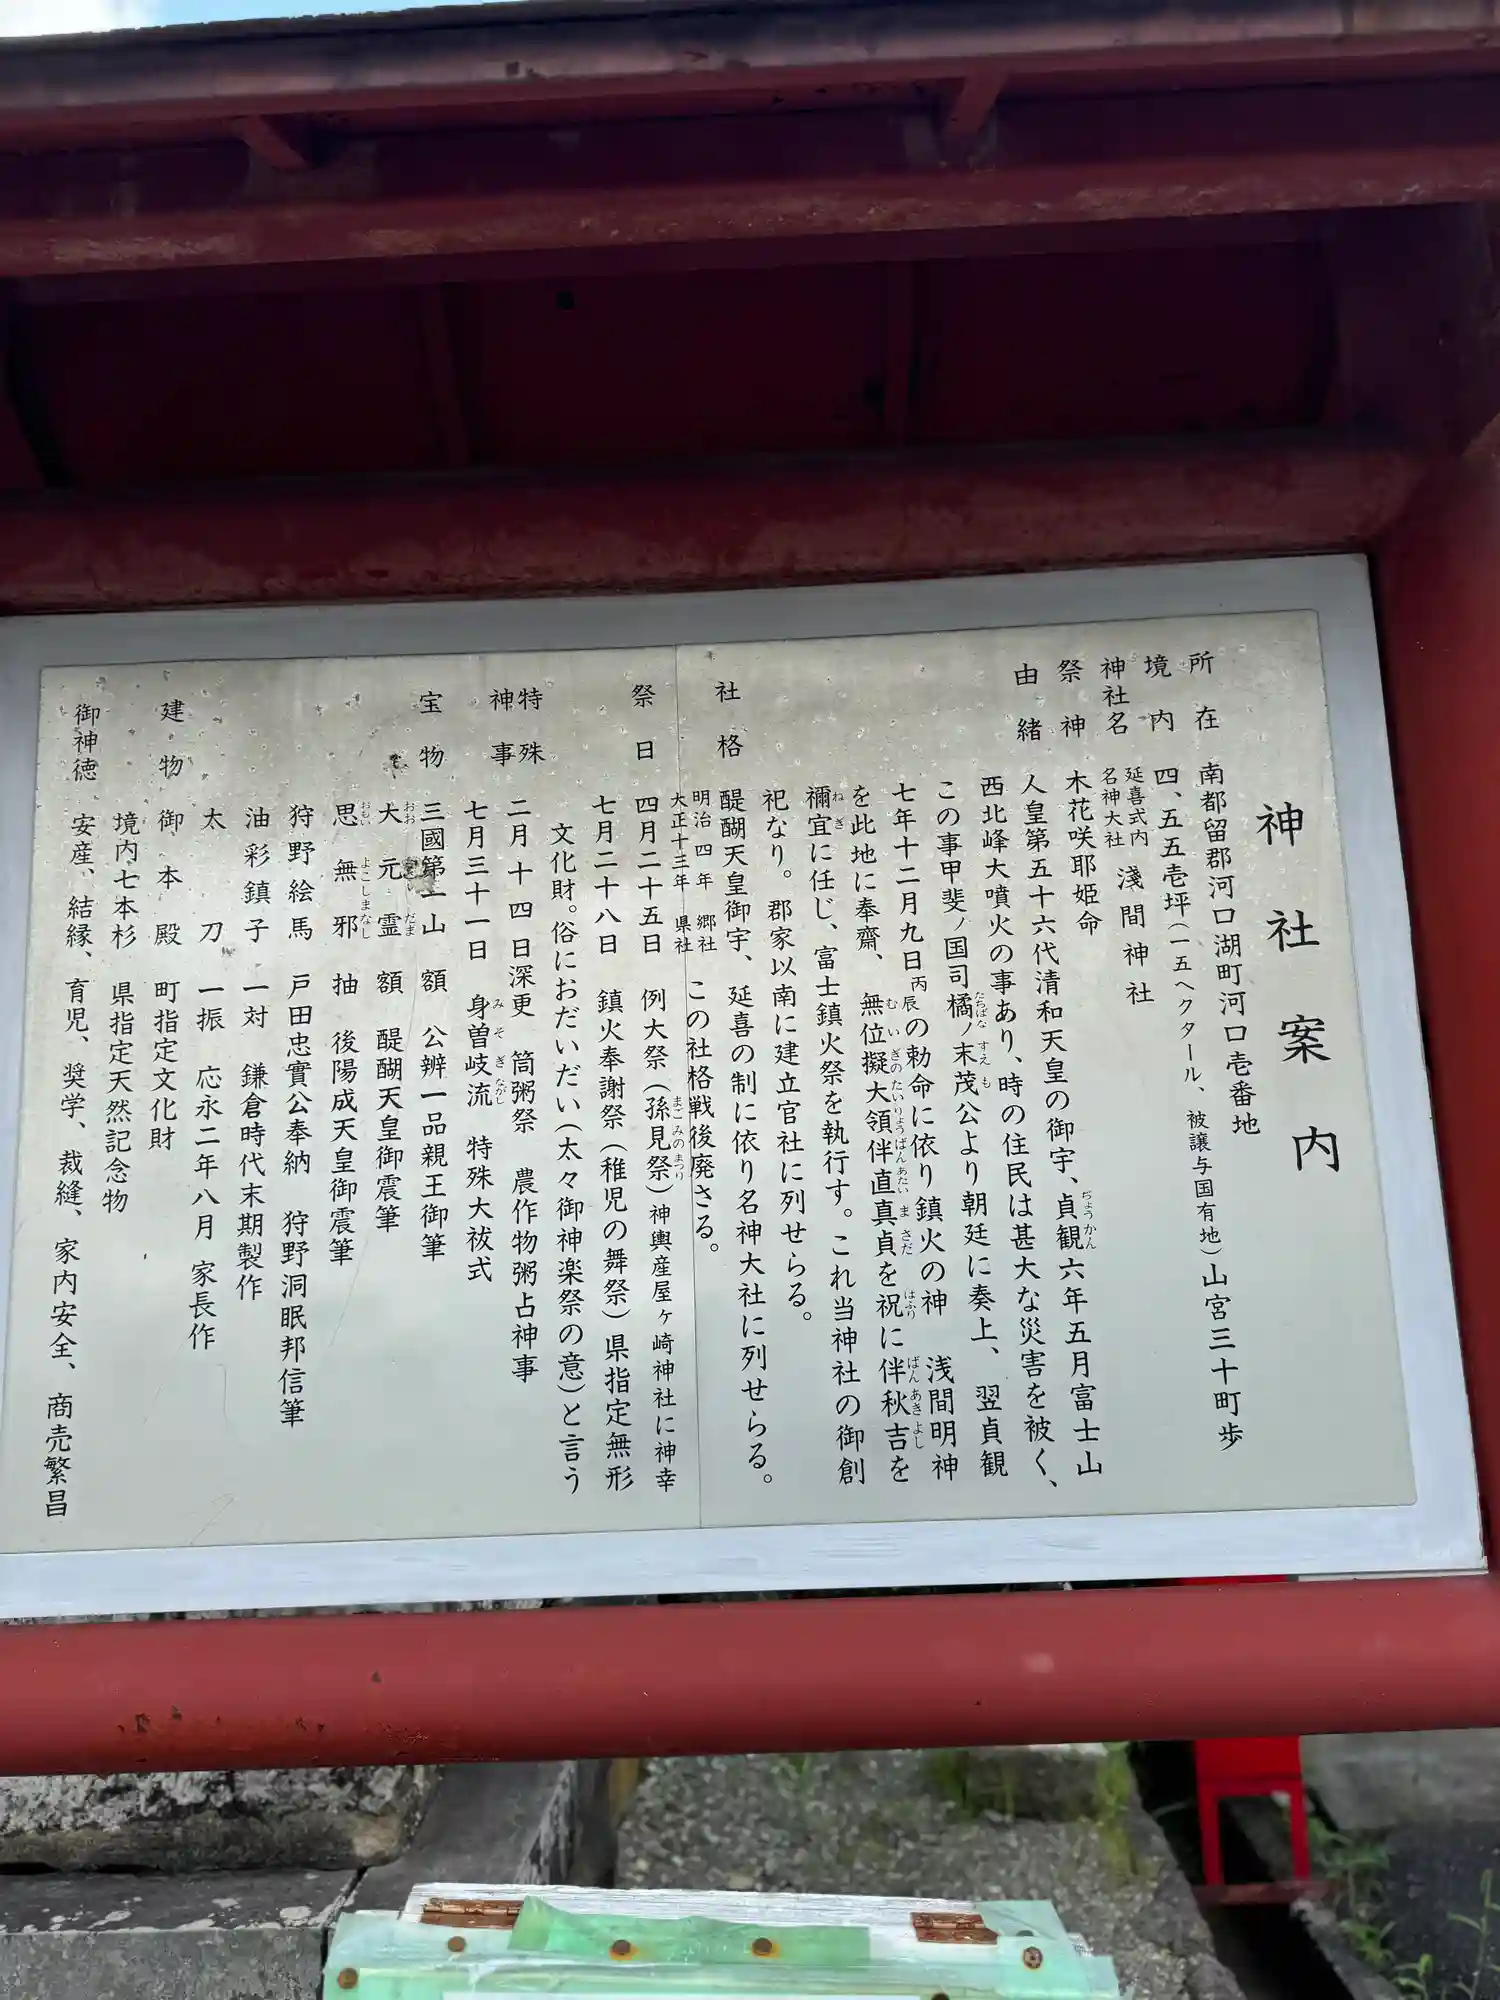 神社案内
所在 南都留郡河口湖町河口壱番地
境内 四、五五壱坪(一五ヘクタール、被譲与国有地)山宮三十町歩
神社名 延喜式内名神大社 淺間神社
祭神 木花咲耶姫命
由緒 人皇第五十六代清和天皇の御宇、貞観六年五月富士山
西北峰大噴火の事あり、時の住民は甚大な災害を被く、
この事甲斐ノ国司橘ノ末茂公より朝廷に奏上、翌貞観
七年十二月九日丙辰の勅命に依り鎮火の神 浅間明神
を此地に奉齋、無位擬大領伴直真貞を祝に伴秋吉を
禰宜に任じ、富士鎮火祭を執行す。これ当神社の御創
祀なり。郡家以南に建立官社に列せらる。
社格 醍醐天皇御宇、延喜の制に依り名神大社に列せらる。
明治四年 郷社 大正十三年 県社 この社格戦後廃さる。
祭日 四月二十五日 例大祭(孫見祭)神輿産屋ヶ崎神社に神幸
七月二十八日 鎮火奉謝祭(稚児の舞祭)県指定無形
文化財。俗におだいだい(太々御神楽祭の意)と言う
特殊神事 二月十四日深更 筒粥祭 農作物粥占神事
七月三十一日 身曽岐流 特殊大祓式
宝物 三國第一山 額 公辨一品親王御筆
大元霊 額 醍醐天皇御震筆
思無邪 抽 後陽成天皇御震筆
狩野絵馬 戸田忠實公奉納 狩野洞眠邦信筆
油彩鎮子 一対 鎌倉時代末期製作
太刀 一振 応永二年八月 家長作
建物 御本殿 町指定文化財
境内七本杉 県指定天然記念物
御神徳 安産、結縁、育児、奨学、裁縫、家内安全、商売繁昌